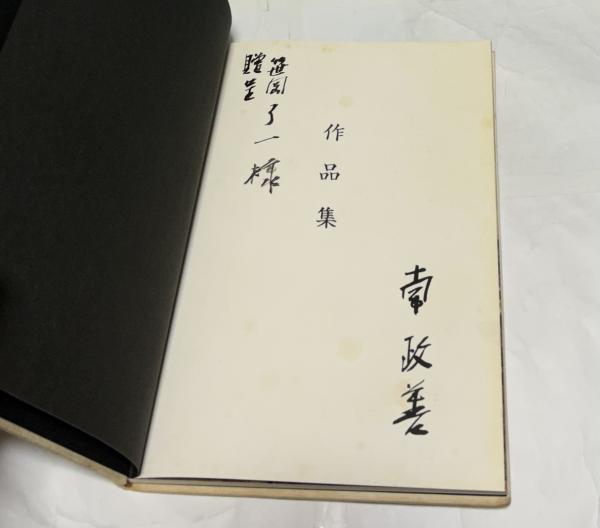 作品集
南政善
笹岡了一様
贈呈